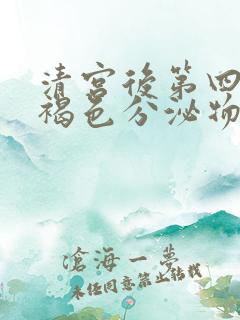 清宫後第四
褐色分泌物
滄海一梦
未经同意禁止转载